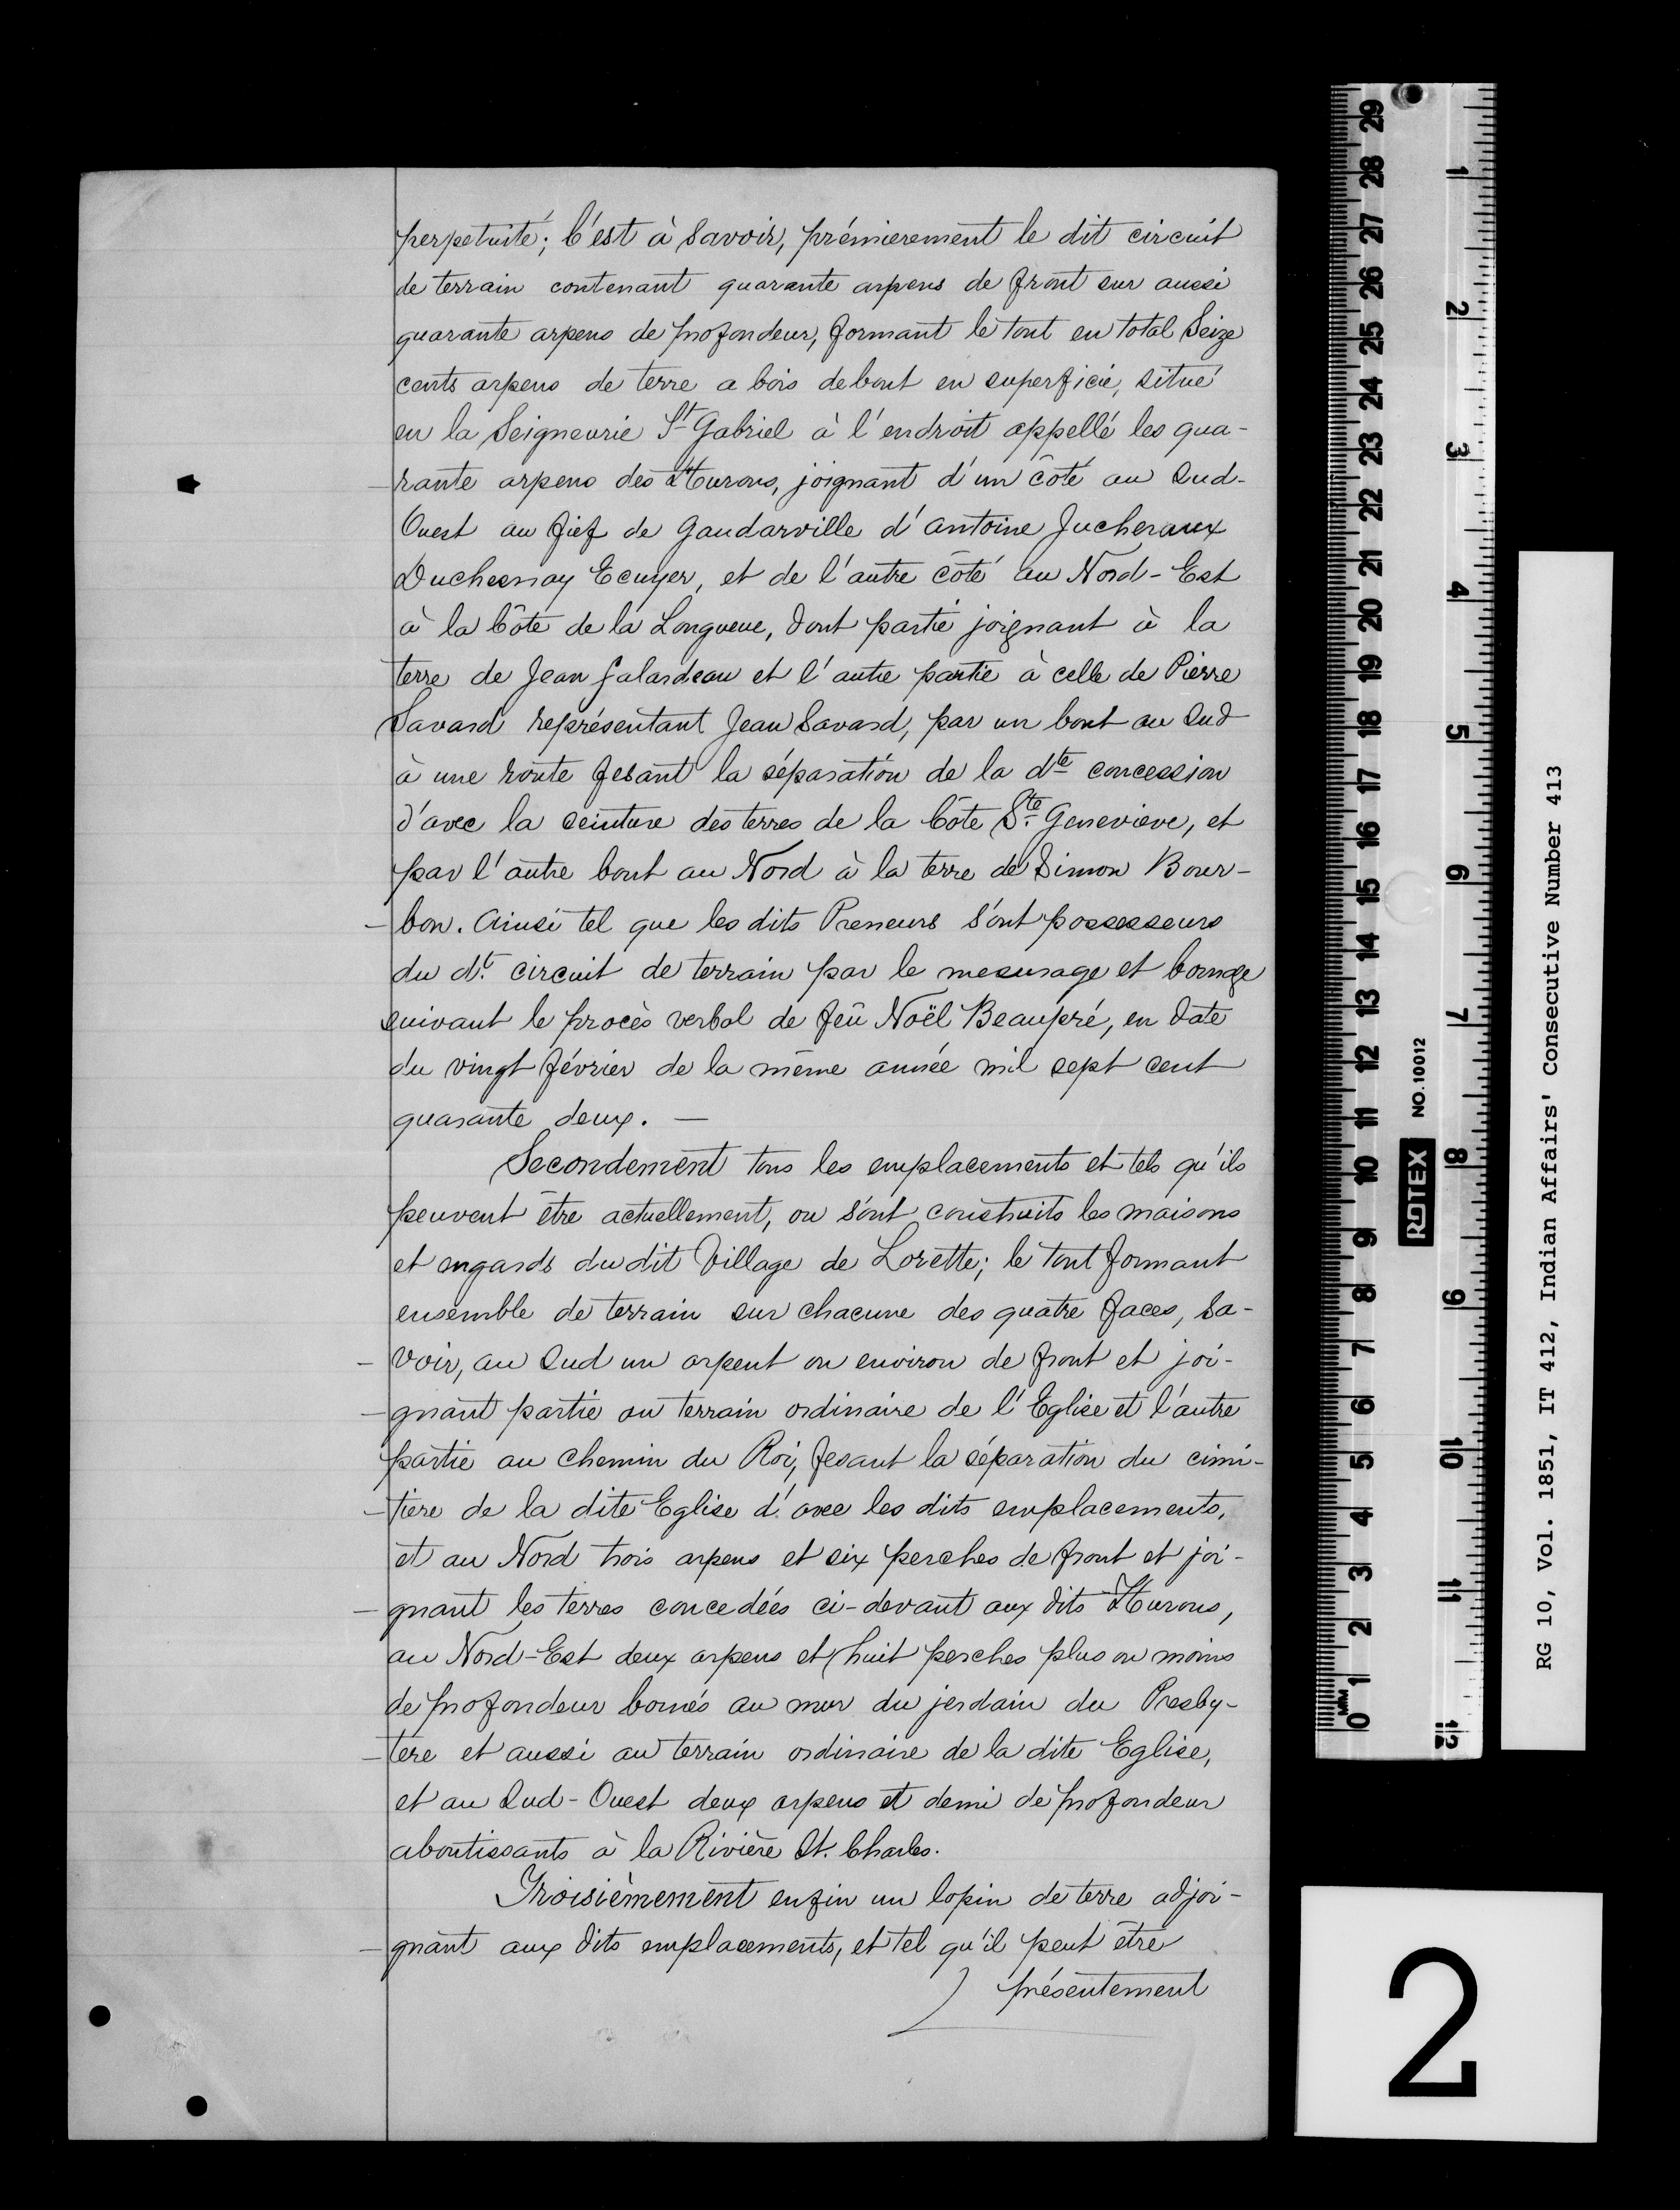 perpetuité; C'est à Savoir, prémierement le dit circuit
de terrain contenant quarante arpens de front sur aussi
quarante arpens de profondeur, formant le tout en total Seize
cents arpens de terre a bois debout en superficie, situé
en la Seigneurie St Gabriel à l'endroit appellé les qua-
-rante arpens des Hurons, joignant d'un côté au Sud-
Ouest au fief de Gaudarville d'Antoine Jucheraux
Duchesnay Ecuyer, et de l'autre côté au Nord-Est
à la Côte de la Longueue, dont partie joignant à la
terre de Jean Galardeau et l'autre partie à celle de Pierre
Savard représentant Jean Savard, par un bout au Sud
à une route fesant la séparation de la dte concession
d'avec la ceinture des terres de la Côte Ste Geneviève, et
par l'autre bout au Nord à la terre de Simon Bour-
-bon. Ainsi tel que les dits Preneurs sont possesseurs
du dt. circuit de terrain par le mesurage et bornage
suivant le procès verbal de feû Noël Beaupré, en date
du vingt février de la même année mil sept cent
quarante deux. —
Secondement tous les emplacements et tels qu'ils
peuvent être actuellement, ou sont construits les maisons
et engards du dit Village de Lorette; le tout formant
ensemble de terrain sur chacune des quatre faces, Sa-
-voir, au Sud un arpent ou environ de front et joi-
-gnant partie au terrain ordinaire de l'Eglise et l'autre
partie au Chemin du Roi, fesant la séparation du cimi-
-tiere de la dite Eglise d'avec les dits emplacements,
et au Nord trois arpens et six perches de front et joi-
-gnant les terres concedées ci-devant aux dits Hurons,
au Nord-Est deux arpens et huit perches plus ou moins
de profondeur bornés au mur du jerdain du Presby-
-tere et aussi au terrain ordinaire de la dite Eglise,
et au Sud-Ouest deux arpens et demi de profondeur
aboutissants à la Rivière St. Charles.
Troisièmement enfin un lopin de terre adjoi-
-gnant aux dits emplacements, et tel qu'il peut être
présentement
RG 10, Vol. 1851, IT 412, Indian Affairs' Consecutive Number 413
2
29 28 27 26 25 24 23 22 21 20 19 18 17 16 15 14 13 12 11 10 9 8 7 6 5 4 3 2 1 0
MM
NO. 10012
ROTEX
1 2 3 4 5 6 7 8 9 10 11 12